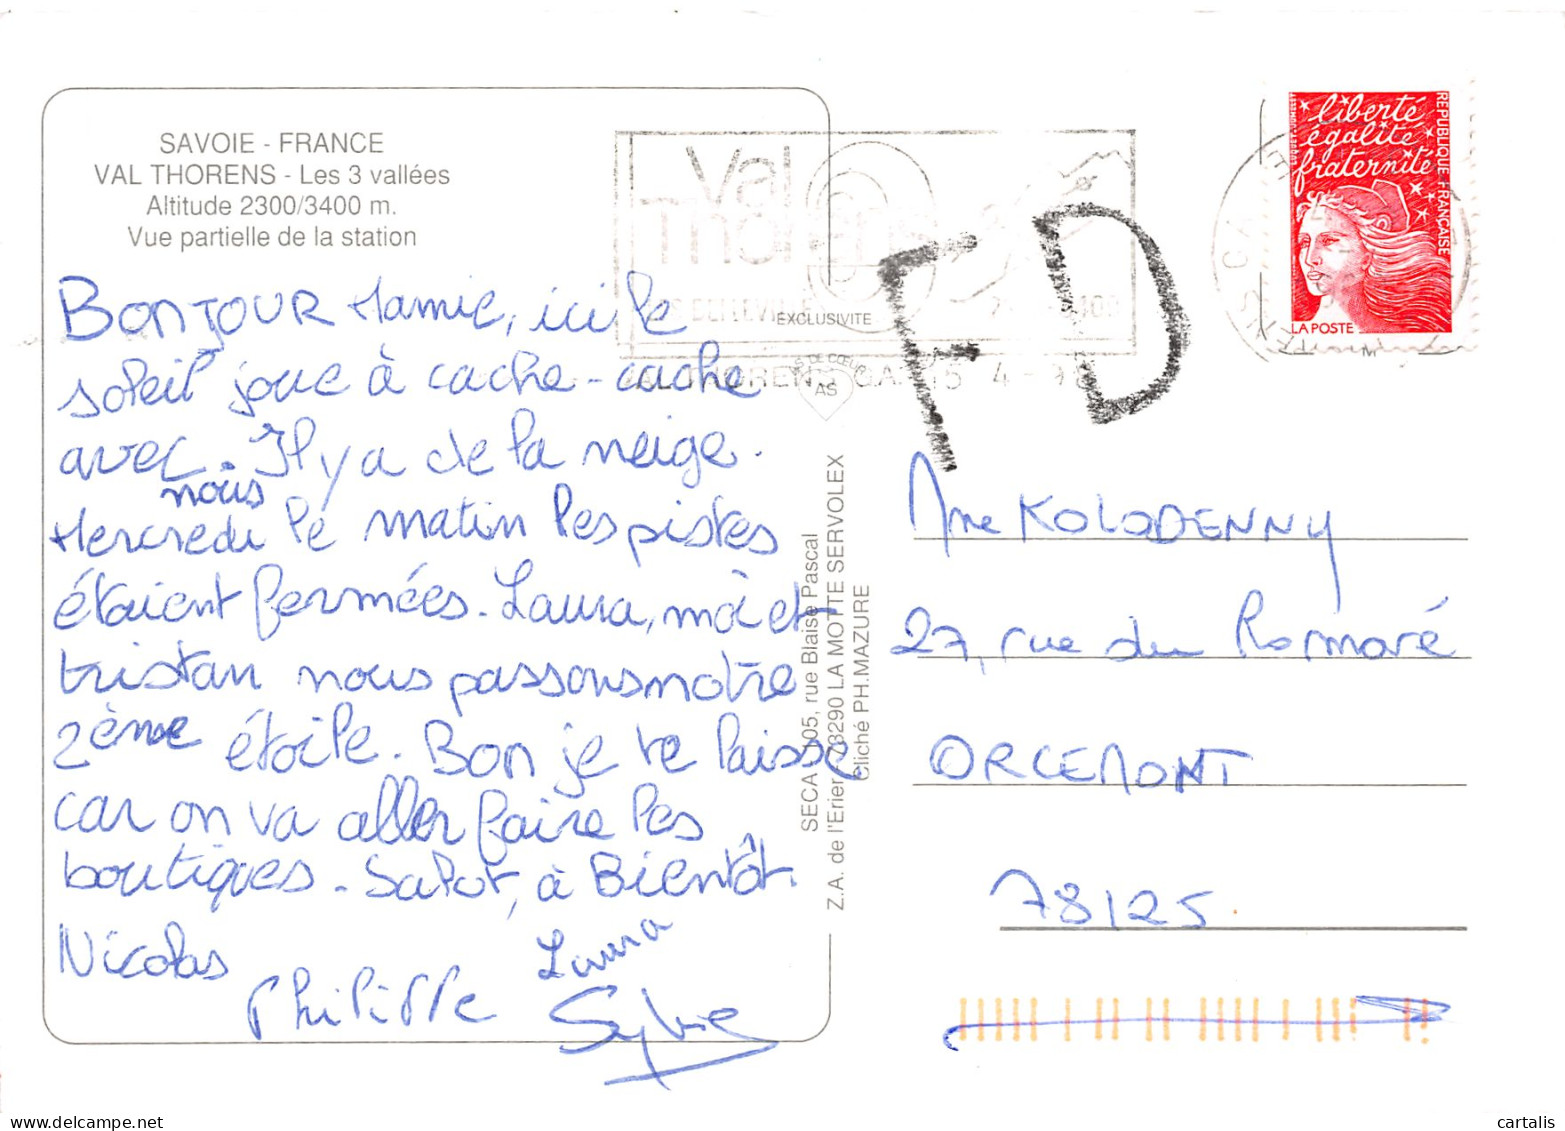 SAVOIE - FRANCE
VAL THORENS - Les 3 vallées
Altitude 2300/3400 m.
Vue partielle de la station
BONJOUR Mamie, ici le
soleil joue à cache-cache
avec nous
. Il y a de la neige.
Mercredi le matin les pistes
étaient fermées. Laura, moi et
tristan nous passons notre
2ème étoile. Bon je te laisse
car on va aller faire les
boutiques. Salut, à Bientôt.
Nicolas
Laura
PhiliPPe
Sylvie
Val
Thorens
LES BELLEVILLE
EXCLUSIVITE
AS DE CŒUR
AS
VAL THORENS
4 - 98
TD
liberté
égalité
fraternité
REPUBLIQUE FRANÇAISE
LA POSTE
SECA 105, rue Blaise Pascal
Z.A. de l'Erier 73290 LA MOTTE SERVOLEX
Cliché PH.MAZURE
Mme KOLODENNY
27, rue du Romaré
ORCEMONT
78125
cartalis
delcampe.net